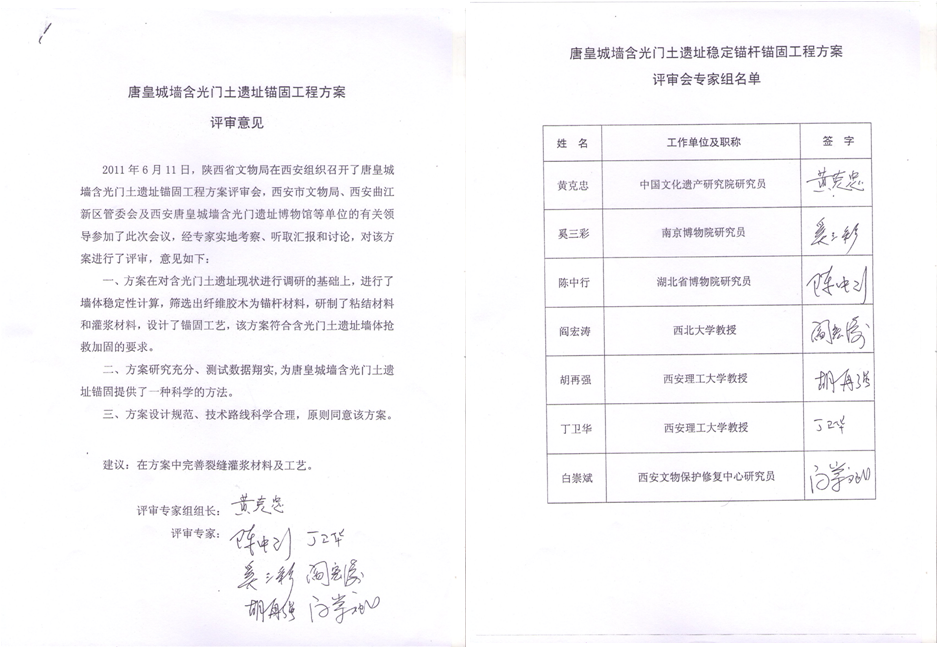 唐皇城墙含光门土遗址锚固工程方案
评审意见
2011年6月11日，陕西省文物局在西安组织召开了唐皇城
墙含光门土遗址锚固工程方案评审会，西安市文物局、西安曲江
新区管委会及西安唐皇城墙含光门遗址博物馆等单位的有关领
导参加了此次会议，经专家实地考察、听取汇报和讨论，对该方
案进行了评审，意见如下：
一、方案在对含光门土遗址现状进行调研的基础上，进行了
墙体稳定性计算，筛选出纤维胶木为锚杆材料，研制了粘结材料
和灌浆材料，设计了锚固工艺，该方案符合含光门土遗址墙体抢
救加固的要求。
二、方案研究充分、测试数据翔实,为唐皇城墙含光门土遗
址锚固提供了一种科学的方法。
三、方案设计规范、技术路线科学合理，原则同意该方案。
建议：在方案中完善裂缝灌浆材料及工艺。
评审专家组组长：黄克忠
评审专家：陈中行 丁卫华
奚三彩 阎宏涛
胡再强 白崇斌
唐皇城墙含光门土遗址稳定锚杆锚固工程方案
评审会专家组名单
姓 名 工作单位及职称 签 字
黄克忠 中国文化遗产研究院研究员 黄克忠
奚三彩 南京博物院研究员 奚三彩
陈中行 湖北省博物院研究员 陈中行
阎宏涛 西北大学教授 阎宏涛
胡再强 西安理工大学教授 胡再强
丁卫华 西安理工大学教授 丁卫华
白崇斌 西安文物保护修复中心研究员 白崇斌